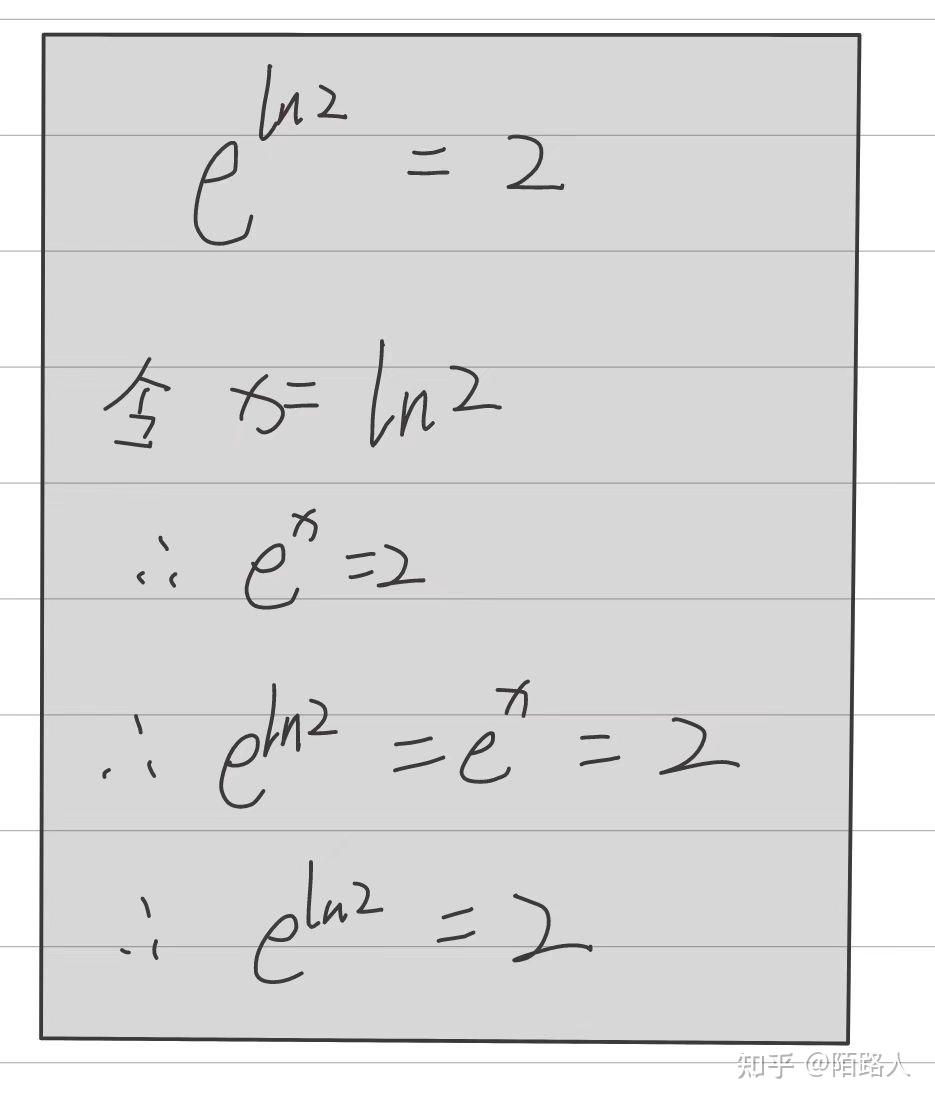 e^{ln2} = 2
令 x = ln2
∴ e^x = 2
∴ e^{ln2} = e^x = 2
∴ e^{ln2} = 2
知乎 @陌路人